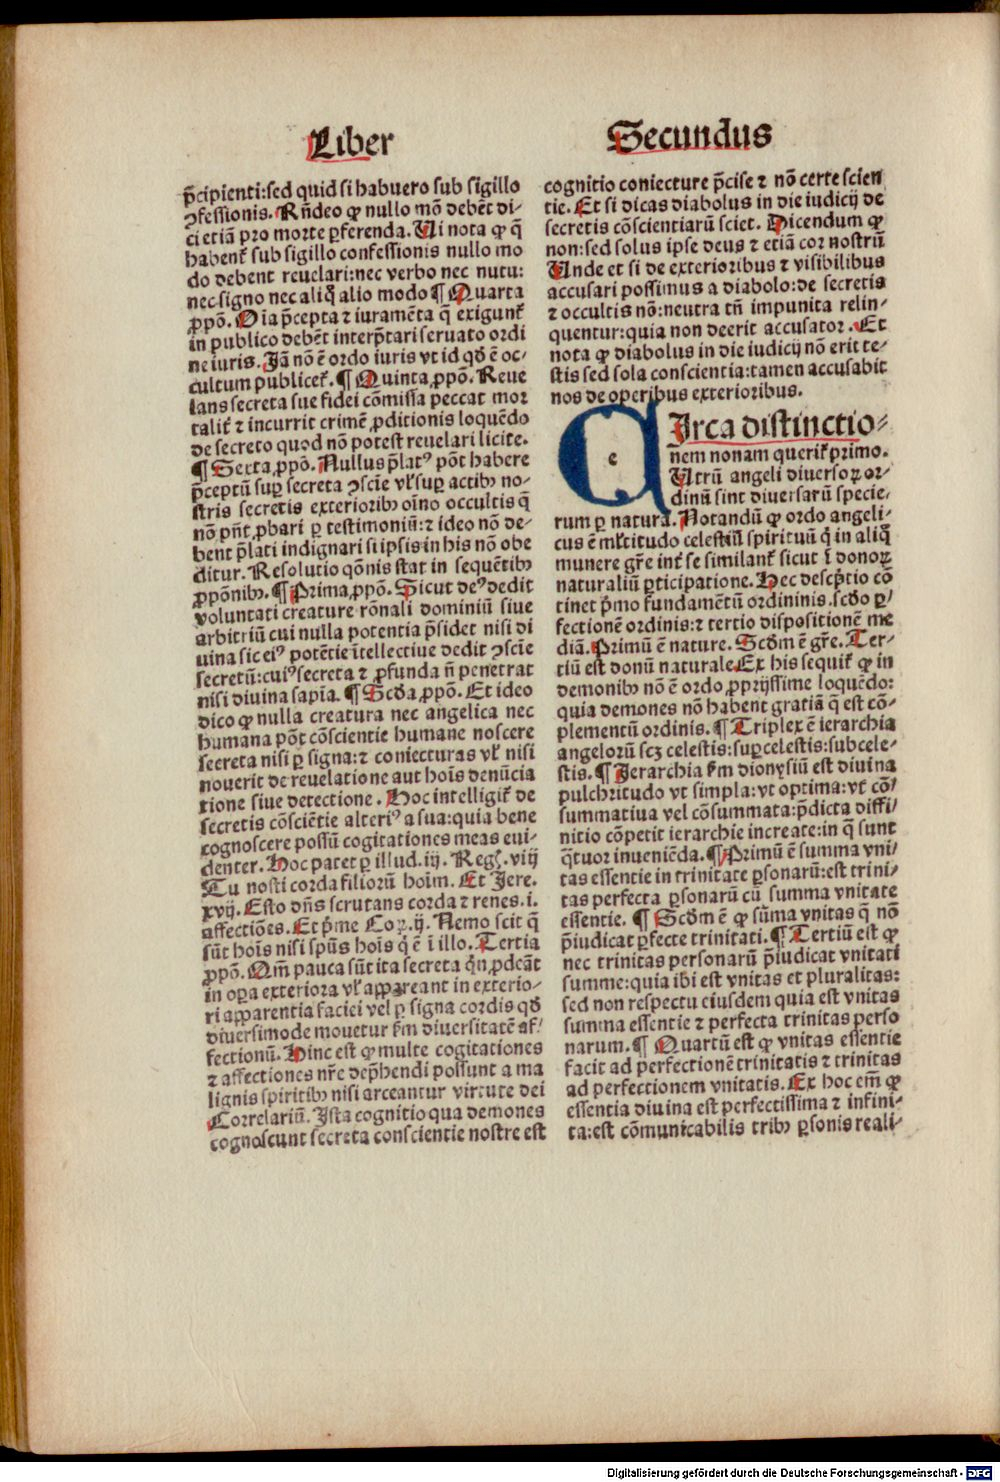 Liber
Secundus
p̄cipienti:sed quid si habuero sub sigillo
ꝯfessionis. Rn̄deo ꝙ nullo mō debēt di-
ci etiā pro morte ꝑferenda. Ui nota ꝙ q̄
habent᷑ sub sigillo confessionis nullo mo
do debent reuelari:nec verbo nec nutu:
nec signo nec aliq̄ alio modo ¶ Quarta
ꝓpō. Oīa p̄cepta ⁊ iuramēta q̄ exigunt᷑
in publico debēt interp̄tari seruato ordi
ne iuris. Jā nō ē ordo iuris vt id qd̄ ē oc-
cultum publicet᷑. ¶ Quinta ꝓpō. Reue
lans secreta sue fidei cōmissa peccat mor
talit᷑ ⁊ incurrit crimē ꝓditionis loquēdo
de secreto quod nō potest reuelari licite.
¶ Sexta ꝓpō. Nullus p̄latꝰ pōt habere
p̄ceptū suꝑ secreta ꝯscīe vl᷑ suꝑ actibꝫ no-
stris secretis exterioribꝫ oīno occultis q̄
nō pn̄t ꝓbari ꝑ testimoniū:⁊ ideo nō de-
bent p̄lati indignari si ipsis in his nō obe
ditur. Resolutio qōnis stat in sequētibꝫ
ꝓpōnibꝫ. ¶ Prima ꝓpō. Sicut deꝰ dedit
voluntati creature rōnali dominiū siue
arbitriū cui nulla potentia p̄sidet nisi di
uina sic eiꝰ potētie ītellectiue dedit ꝯscīe
secretū:cuiꝰ secreta ⁊ ꝓfunda n̄ penetrat
nisi diuina sapīa. ¶ Scd̄a ꝓpō. Et ideo
dico ꝙ nulla creatura nec angelica nec
humana pōt cōscientie humane noscere
secreta nisi ꝑ signa:⁊ coniecturas vl᷑ nisi
nouerit de reuelatione aut hoīs denūcia
tione siue detectione. Hoc intelligit᷑ de
secretis cōsciētie alteriꝰ a sua:quia bene
cognoscere possū cogitationes meas eui-
denter. Hoc patet ꝑ illud. iij. Reg. viij
Tu nosti corda filiorū hoīm. Et Jere.
xvij. Esto dn̄s scrutans corda ⁊ renes. i.
affectiōes. Et p̄me Coꝝ. ij. Nemo scit q̄
sūt hoīs nisi spūs hoīs q̇ ē ī illo. Tertia
ꝓpō. Qm̄ pauca sūt ita secreta q̇n ꝓdeāt
in oꝑa exteriora vl᷑ appareant in exterio-
ri apparentia faciei vel ꝑ signa cordis qd̄
diuersimode mouetur ẜm diuersitatē af-
fectionū. Hinc est ꝙ multe cogitationes
⁊ affectiones nr̄e dep̄hendi possunt a ma
lignis spiritibꝫ nisi arceantur virtute dei
Correlariū. Jsta cognitio qua demones
cognoscunt secreta conscientie nostre est
cognitio coniecture p̄cise ⁊ nō certe scien
tie. Et si dicas diabolus in die iudicij de
secretis cōscientiarū sciet. Dicendum ꝙ
non:sed solus ipse deus ⁊ etiā cor nostrū
Unde et si de exterioribus ⁊ visibilibus
accusari possimus a diabolo:de secretis
⁊ occultis nō:neutra tn̄ impunita relin-
quentur:quia non deerit accusator. Et
nota ꝙ diabolus in die iudicij nō erit te-
stis sed sola conscientia:tamen accusabit
nos de operibus exterioribus.
CIrca distinctio-
nem nonam querit᷑ primo.
Utrū angeli diuersoꝝ or-
dinū sint diuersarū specie-
rum ꝑ natura. Notandū ꝙ ordo angeli-
cus ē ml̄titudo celestiū spirituū q̇ in aliq̄
munere gr̄e int᷑ se similant᷑ sicut ī donoꝝ
naturaliū ꝑticipatione. Hec descp̄tio cō
tinet p̄mo fundamētū ordininis. scd̄o ꝑ-
fectionē ordinis:⁊ tertio dispositionē me
diā. Primū ē nature. Scd̄m ē gr̄e. Ter-
tiū est donū naturale. Ex his sequit᷑ ꝙ in
demonibꝫ nō ē ordo ꝓprijssime loquēdo:
quia demones nō habent gratiā q̄ est cō-
plementū ordinis. ¶ Triplex ē ierarchia
angelorū scꝫ celestis:suꝑcelestis:subcele-
stis. ¶ Jerarchia ẜm dionysiū est diuina
pulchritudo vt simpla:vt optima:vt cō-
summatiua vel cōsummata:p̄dicta diffi-
nitio cōpetit ierarchie increate:in q̄ sunt
q̄tuor inueniēda. ¶ Primū ē summa vni-
tas essentie in trinitate ꝑsonarū:est trini-
tas perfecta ꝑsonarū cū summa vnitate
essentie. ¶ Scd̄m ē ꝙ sūma vnitas q̄ nō
p̄iudicat ꝑfecte trinitati. ¶ Tertiū est ꝙ
nec trinitas personarū p̄iudicat vnitati
summe:quia ibi est vnitas et pluralitas:
sed non respectu eiusdem quia est vnitas
summa essentie ⁊ perfecta trinitas perso
narum. ¶ Quartū est ꝙ vnitas essentie
facit ad perfectionē trinitatis ⁊ trinitas
ad perfectionem vnitatis. Ex hoc em̄ ꝙ
essentia diuina est perfectissima ⁊ infini-
ta:est cōmunicabilis tribꝫ ꝑsonis reali-
Digitalisierung gefördert durch die Deutsche Forschungsgemeinschaft - DFG